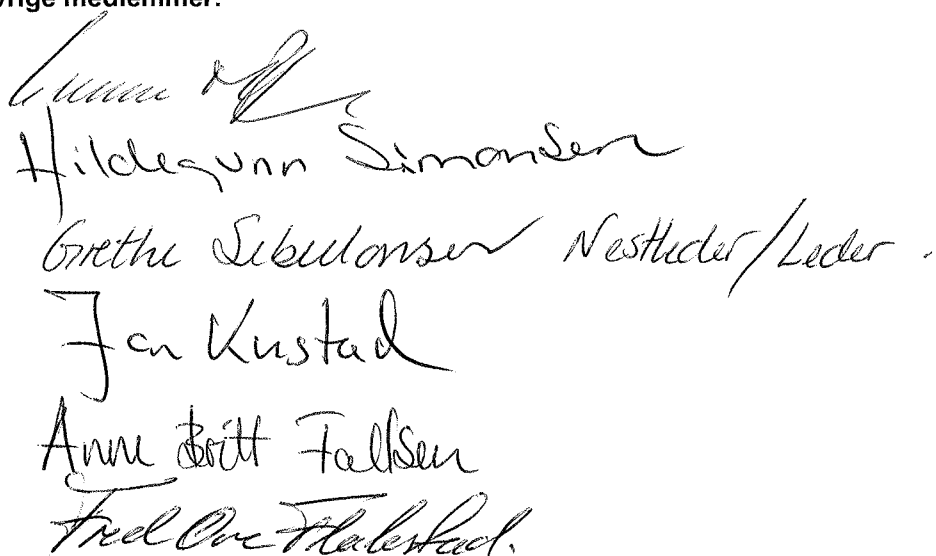 vrige medlemmer:
Hildegunn Simonsen
Grethe Sebulonsen Nestleder/Leder
Jan Kustad
Anne Britt Falksen
Fred Ove